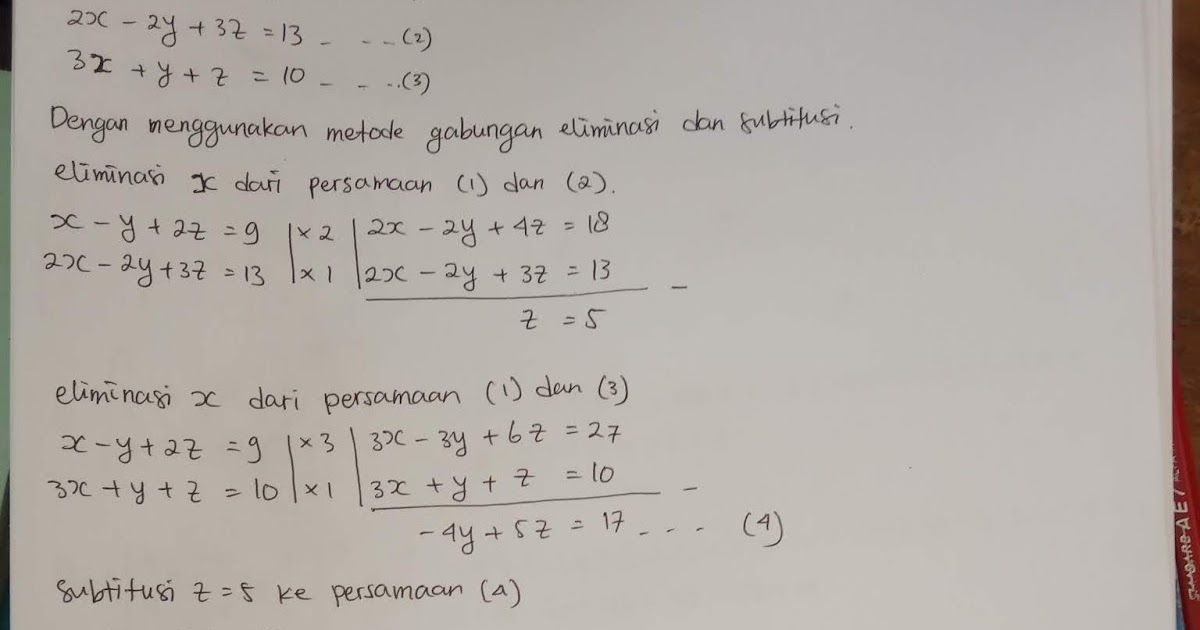 2x - 2y + 3z = 13 - - - (2)
3x + y + z = 10 - - . . (3)
Dengan menggunakan metode gabungan eliminasi dan subtitusi.
eliminasi x dari persamaan (1) dan (2).
x - y + 2z = 9 | × 2 | 2x - 2y + 4z = 18
2x - 2y + 3z = 13 | × 1 | 2x - 2y + 3z = 13 -
z = 5
eliminasi x dari persamaan (1) dan (3)
x - y + 2z = 9 | × 3 | 3x - 3y + 6z = 27
3x + y + z = 10 | × 1 | 3x + y + z = 10 -
- 4y + 5z = 17 - - - (4)
Subtitusi z = 5 ke persamaan (4)